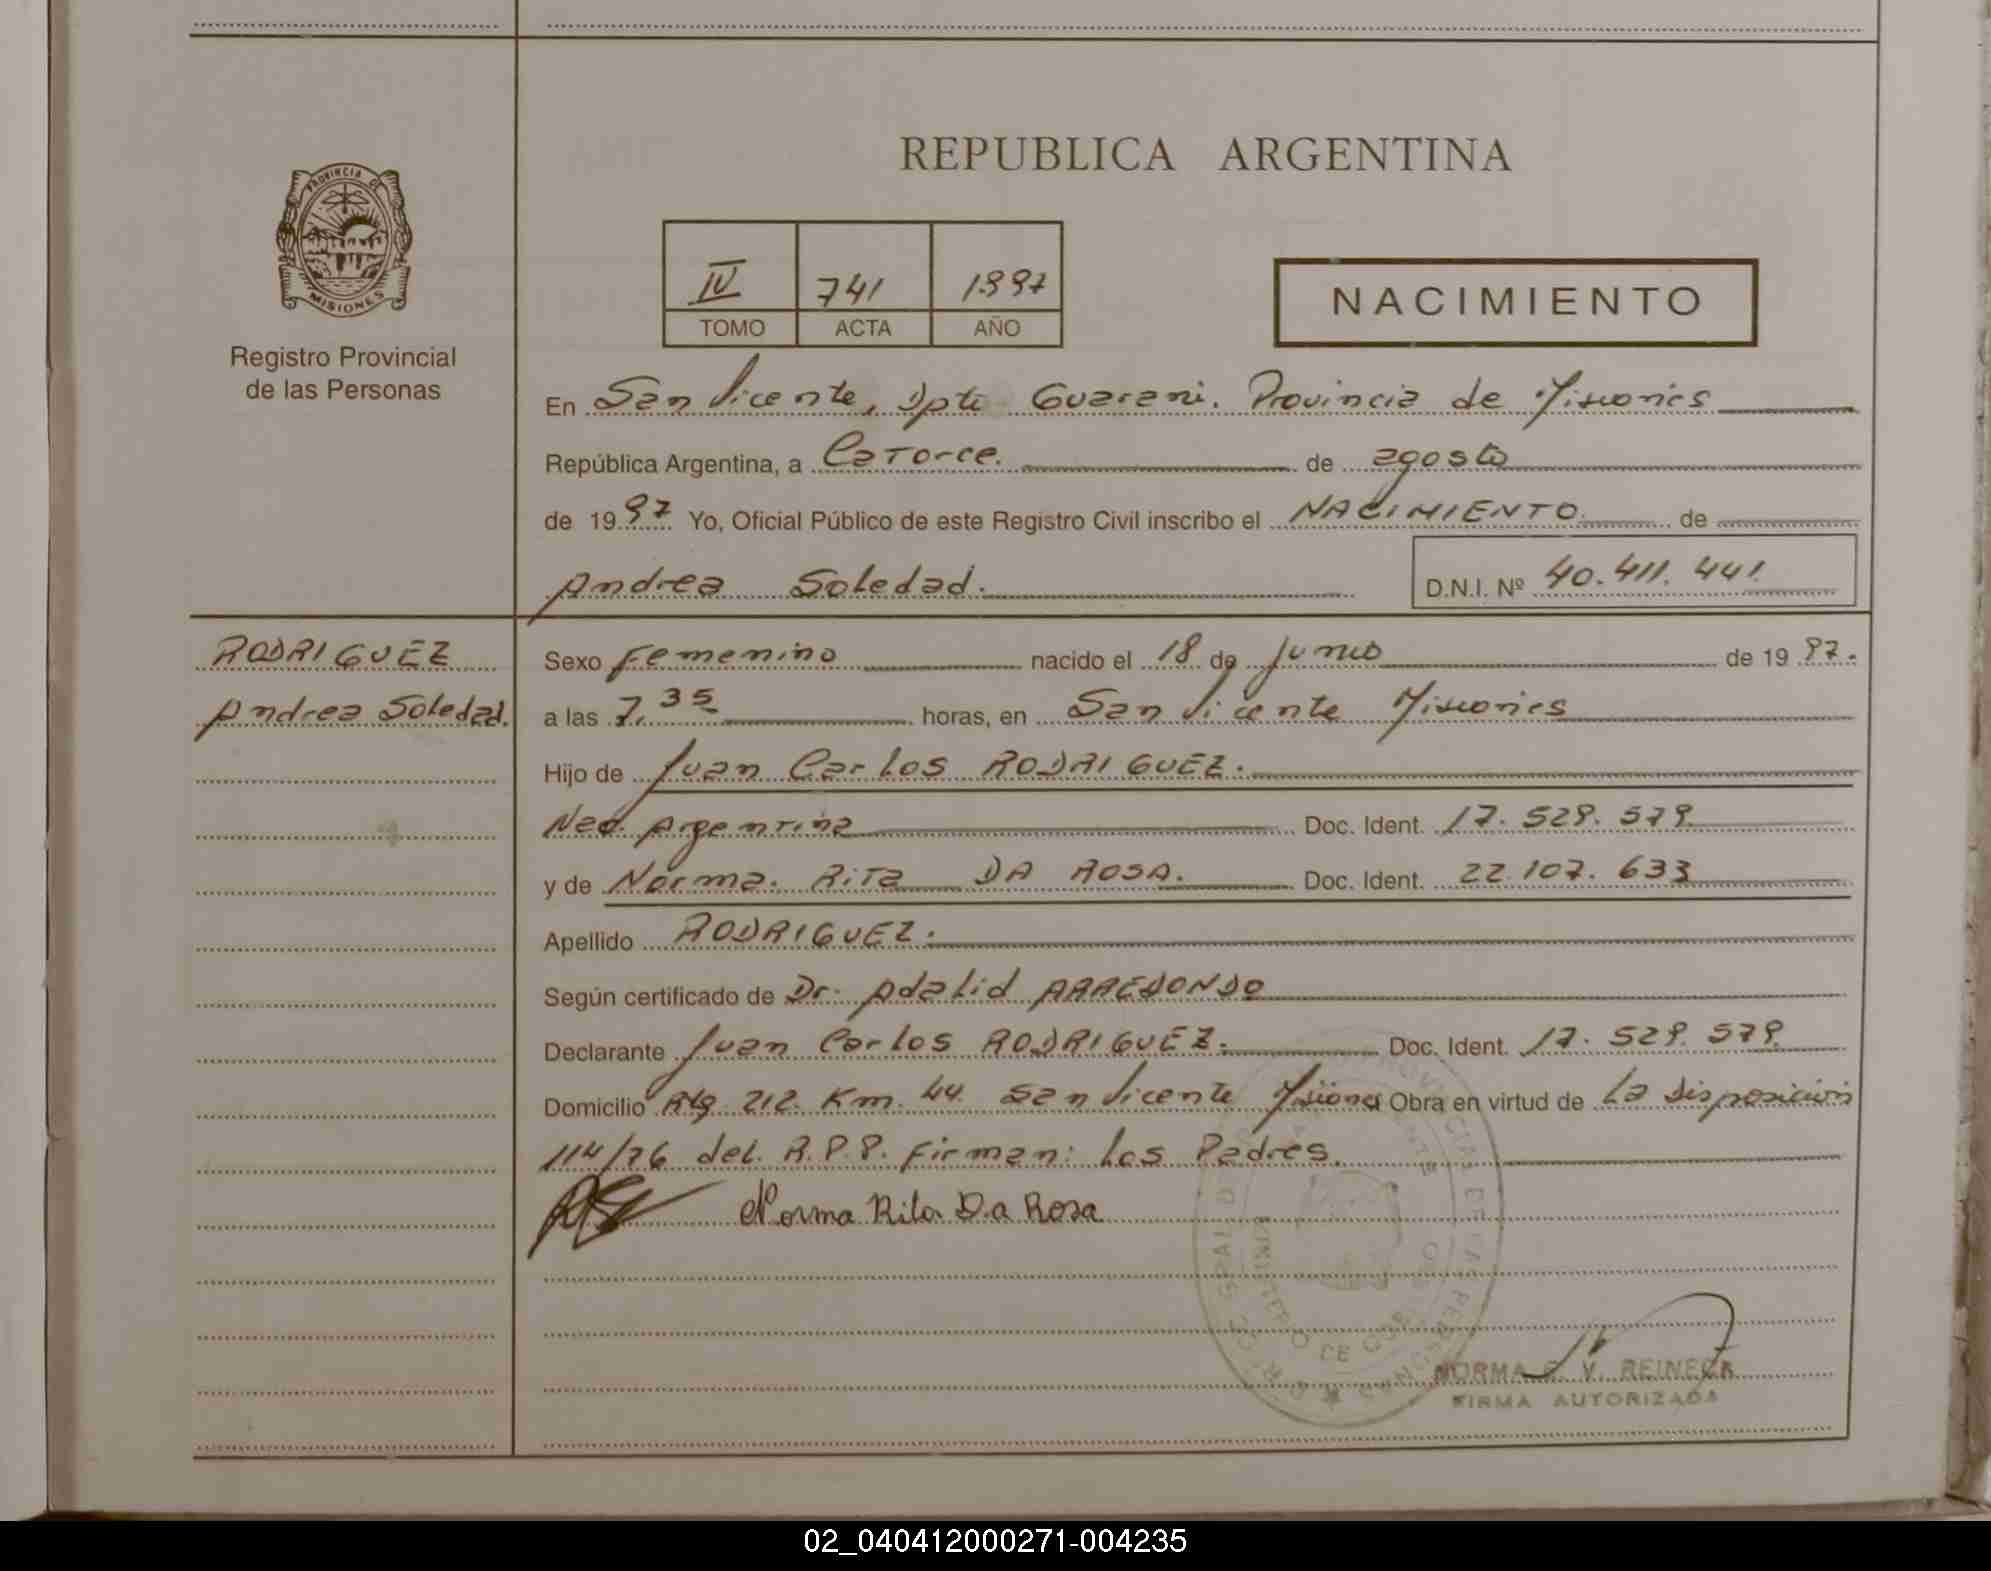 REPUBLICA ARGENTINA
PROVINCIA DE
MISIONES
Registro Provincial
de las Personas
IV 741 1.997
TOMO ACTA AÑO
NACIMIENTO
En San Vicente, Dpto Guarani. Provincia de Misiones
República Argentina, a Catorce. de agosto
de 1997 Yo, Oficial Público de este Registro Civil inscribo el NACIMIENTO de
Andrea Soledad. D.N.I. Nº 40.411.441.
RODRIGUEZ
Andrea Soledad.
Sexo Femenino nacido el 18 de Junio de 1997.
a las 7,35 horas, en San Vicente Misiones
Hijo de Juan Carlos RODRIGUEZ.
Nac. Argentina Doc. Ident. 17.529.579.
y de Norma. Rita DA ROSA. Doc. Ident. 22.107.633
Apellido RODRIGUEZ.
Según certificado de Dr. Adalid ARREDONDO
Declarante Juan Carlos RODRIGUEZ. Doc. Ident. 17.529.579.
Domicilio 212. Km. 44. San Vicente Misiones Obra en virtud de La Disposición
114/76 del. R.P.P. Firman: Los Padres.
Norma Rita Da Rosa
NORMA E. V. REINECK
FIRMA AUTORIZADA
02_040412000271-004235